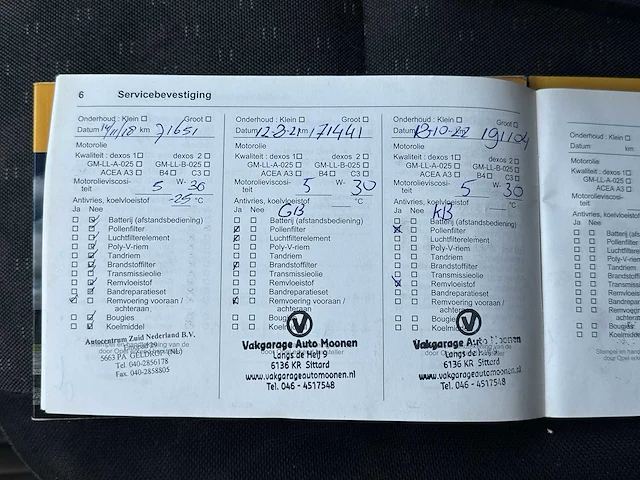 6 Servicebevestiging
Onderhoud : Klein Groot
Datum 14/11/18 km 71651
Motorolie
Kwaliteit : dexos 1 dexos 2
GM-LL-A-025 GM-LL-B-025
ACEA A3 B4 C3
Motorolieviscosi-
teit 5 W- 30
Antivries, koelvloeistof -25 °C
Ja Nee
Batterij (afstandsbediening)
Pollenfilter
Luchtfilterelement
Poly-V-riem
Tandriem
Brandstoffilter
Transmissieolie
Remvloeistof
Bandreparatieset
Remvoering vooraan /
achteraan
Bougies
Koelmiddel
Autocentrum Zuid Nederland B.V.
5663 PA GELDROP (NL)
Tel. 040-2856178
Fax. 040-2858805
Onderhoud : Klein Groot
Datum 12-2-21 km 171441
Motorolie
Kwaliteit : dexos 1 dexos 2
GM-LL-A-025 GM-LL-B-025
ACEA A3 B4 C3
Motorolieviscosi-
teit 5 W- 30
Antivries, koelvloeistof °C
Ja Nee GB
Batterij (afstandsbediening)
Pollenfilter
Luchtfilterelement
Poly-V-riem
Tandriem
Brandstoffilter
Transmissieolie
Remvloeistof
Bandreparatieset
Remvoering vooraan /
achteraan
Bougies
Koelmiddel
Vakgarage Auto Moonen
Langs de Heij 9
6136 KR Sittard
www.vakgarageautomoonen.nl
Tel. 046 - 4517548
Onderhoud : Klein Groot
Datum 10-22 191104
Motorolie
Kwaliteit : dexos 1 dexos 2
GM-LL-A-025 GM-LL-B-025
ACEA A3 B4 C3
Motorolieviscosi-
teit 5 W- 30
Antivries, koelvloeistof °C
Ja Nee KB
Batterij (afstandsbediening)
Pollenfilter
Luchtfilterelement
Poly-V-riem
Tandriem
Brandstoffilter
Transmissieolie
Remvloeistof
Bandreparatieset
Remvoering vooraan /
achteraan
Bougies
Koelmiddel
Vakgarage Auto Moonen
Langs de Heij 9
6136 KR Sittard
www.vakgarageautomoonen.nl
Tel. 046 - 4517548
Onderhoud : Klein
Datum km
Motorolie
Kwaliteit : dexos 1
GM-LL-A-025
ACEA A3
Motorolieviscosi-
teit
Antivries, koelvloeistof
Ja Nee
Batterij (afstands
Pollenfilter
Luchtfilterelem
Poly-V-riem
Tandriem
Brandstoffilter
Transmissieolie
Remvloeistof
Bandreparaties
Remvoering voo
achteraan
Bougies
Koelmiddel
Stempel en hand
door Opel